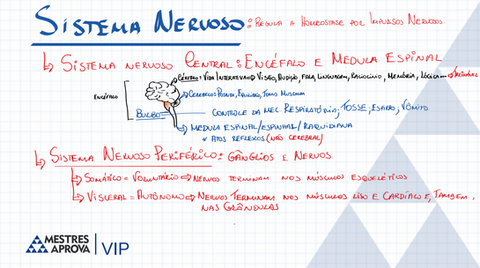 SISTEMA NERVOSO: REGULA A HOMEOSTASE POR IMPULSOS NERVOSOS
SISTEMA NERVOSO CENTRAL: ENCÉFALO E MEDULA ESPINAL
CÉREBRO: VIDA INTERATIVA → VISÃO, AUDIÇÃO, FALA, LINGUAGEM, RACIOCÍNIO, MEMÓRIA, LÓGICA
ENCÉFALO
CEREBELO: POSTURA, EQUILÍBRIO, TÔNUS MUSCULAR
BULBO → CONTROLE DA MEC RESPIRATÓRIA, TOSSE, ESPIRRO, VÔMITO
MEDULA ESPINAL/ESPINHAL/RAQUIDIANA
* ATOS REFLEXOS (NÃO CEREBRAL)
SISTEMA NERVOSO PERIFÉRICO: GÂNGLIOS E NERVOS
SOMÁTICO = VOLUNTÁRIO ⇒ NERVOS TERMINAM NOS MÚSCULOS ESQUELÉTICOS
VISCERAL = AUTÔNOMO ⇒ NERVOS TERMINAM NOS MÚSCULOS LISO E CARDÍACO E, TAMBÉM,
NAS GLÂNDULAS
MESTRES
APROVA VIP